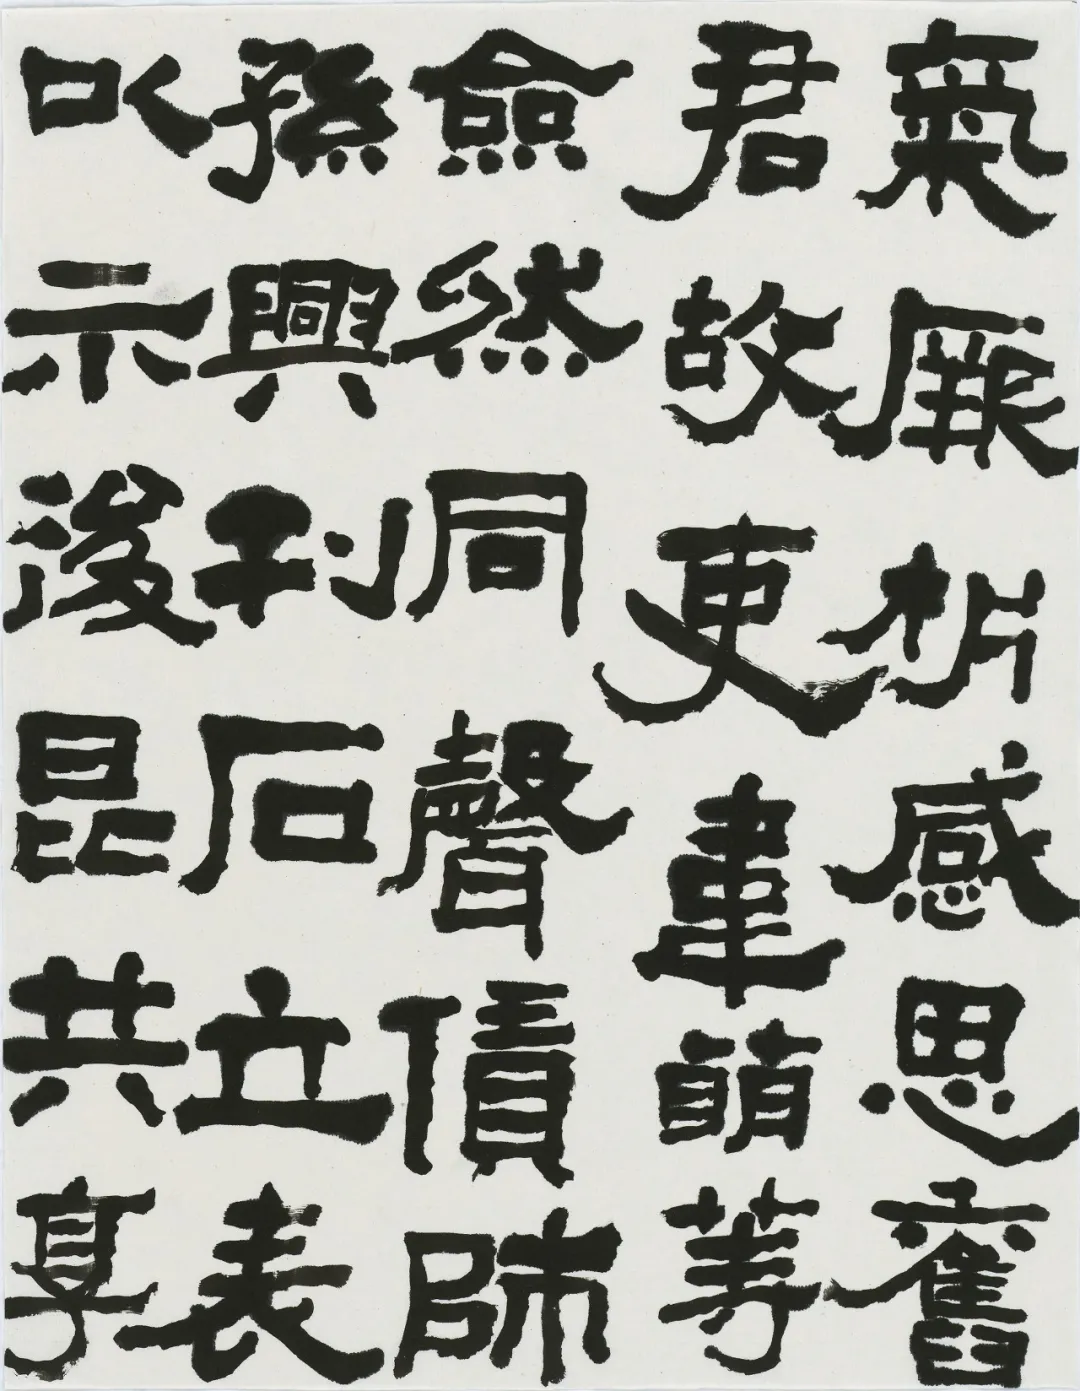 氣厥析感思舊
君故吏韋萌等
僉然同聲賃師
孫興刊石立表
以示後昆共享